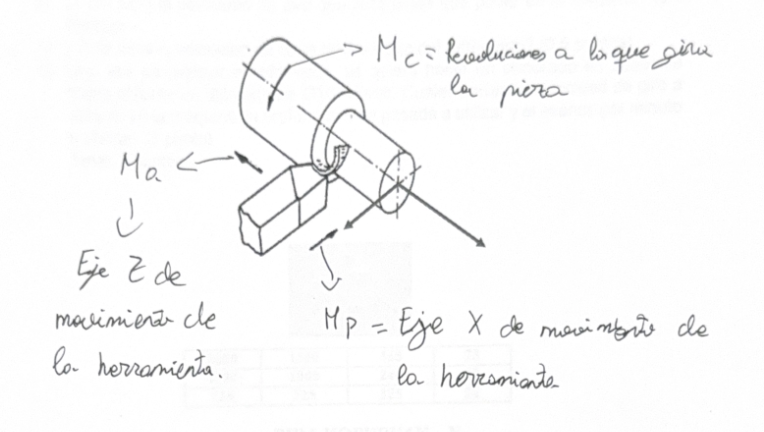 Mc = Revoluciones a la que gira
la pieza
Ma
Eje Z de
movimiento de
la herramienta.
Mp = Eje X de movimiento de
la herramienta